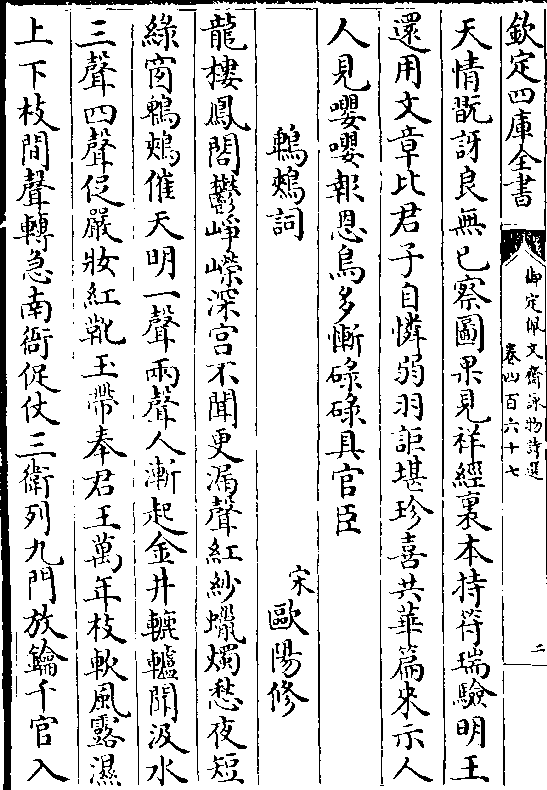 欽定四庫全書
御定佩文齋詠物詩選
卷四百六十七
二
天情既訝良無已察圖果見祥經裏本持符瑞驗明王
還用文章比君子自憐弱羽詎堪珍喜共華篇來示人
人見嚶嚶報恩鳥多慚碌碌具官臣
鵯鵊詞
宋歐陽修
龍樓鳳閣鬱崢嶸深宫不聞更漏聲紅紗蠟燭愁夜短
綠窗鵯鵊催天明一聲兩聲人漸起金井轆轤聞汲水
三聲四聲促嚴妝紅靴玉帶奉君王萬年枝軟風露濕
上下枝間聲轉急南衙促仗三衛列九門放鑰千官入